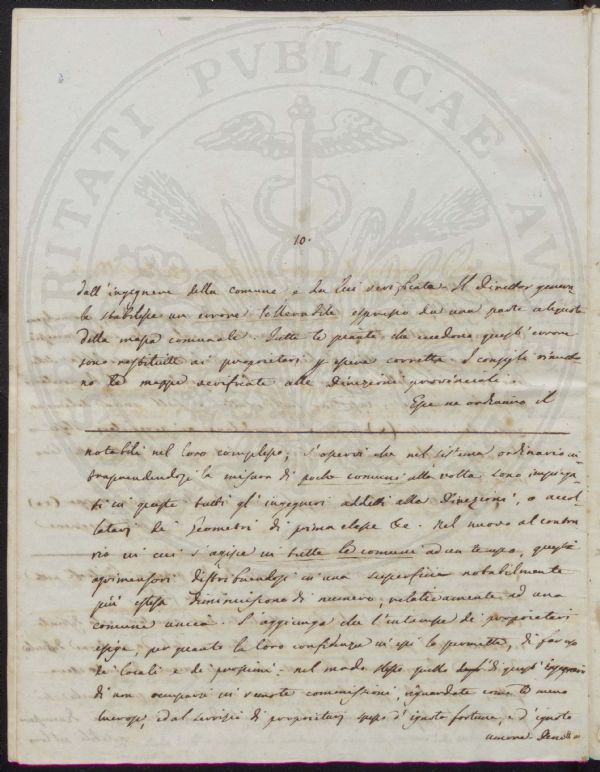 VERITATI PUBLICAE
10.
dall'ingegnere della comune e da lui verificata. Il Director genera-
le stabilisse un errore tollerabile espresso da una parte aliquota
della mappa comunale. Tutte le piante che eccedono quest'errore
sono restituite ai proprietarj p essere corrette. I consigli rimetto-
no le mappe verificate alle Direzioni provinciali.
Esse ne ordinano il
notabili nel loro complesso; s'osservi che nel sistema ordinario in-
traprendendosi la misura di poche comuni alla volta sono impiega-
ti in queste tutti gl'ingegneri addetti alla Direzione, o accol-
latarj di Geometri di prima classe &c. Nel nuovo al contra-
rio in cui s'agisce in tutte le comuni ad un tempo, questi
agrimensori distribuendosi in una superficie notabilmente
più estesa diminuiscono di numero, relativamente ad una
comune unica. S'aggiunga che l'interesse de' proprietarj
esige, per quanto la loro confidenza in essi lo permetta, di far uso
de' locali e de' prossimi: nel modo stesso quello di quest'ingegneri
di non occuparsi in remote commissioni, riguardate come le meno
lucrose, ed al servizio di proprietarj spesso d'ignota fortuna, e d'ignota
ancora